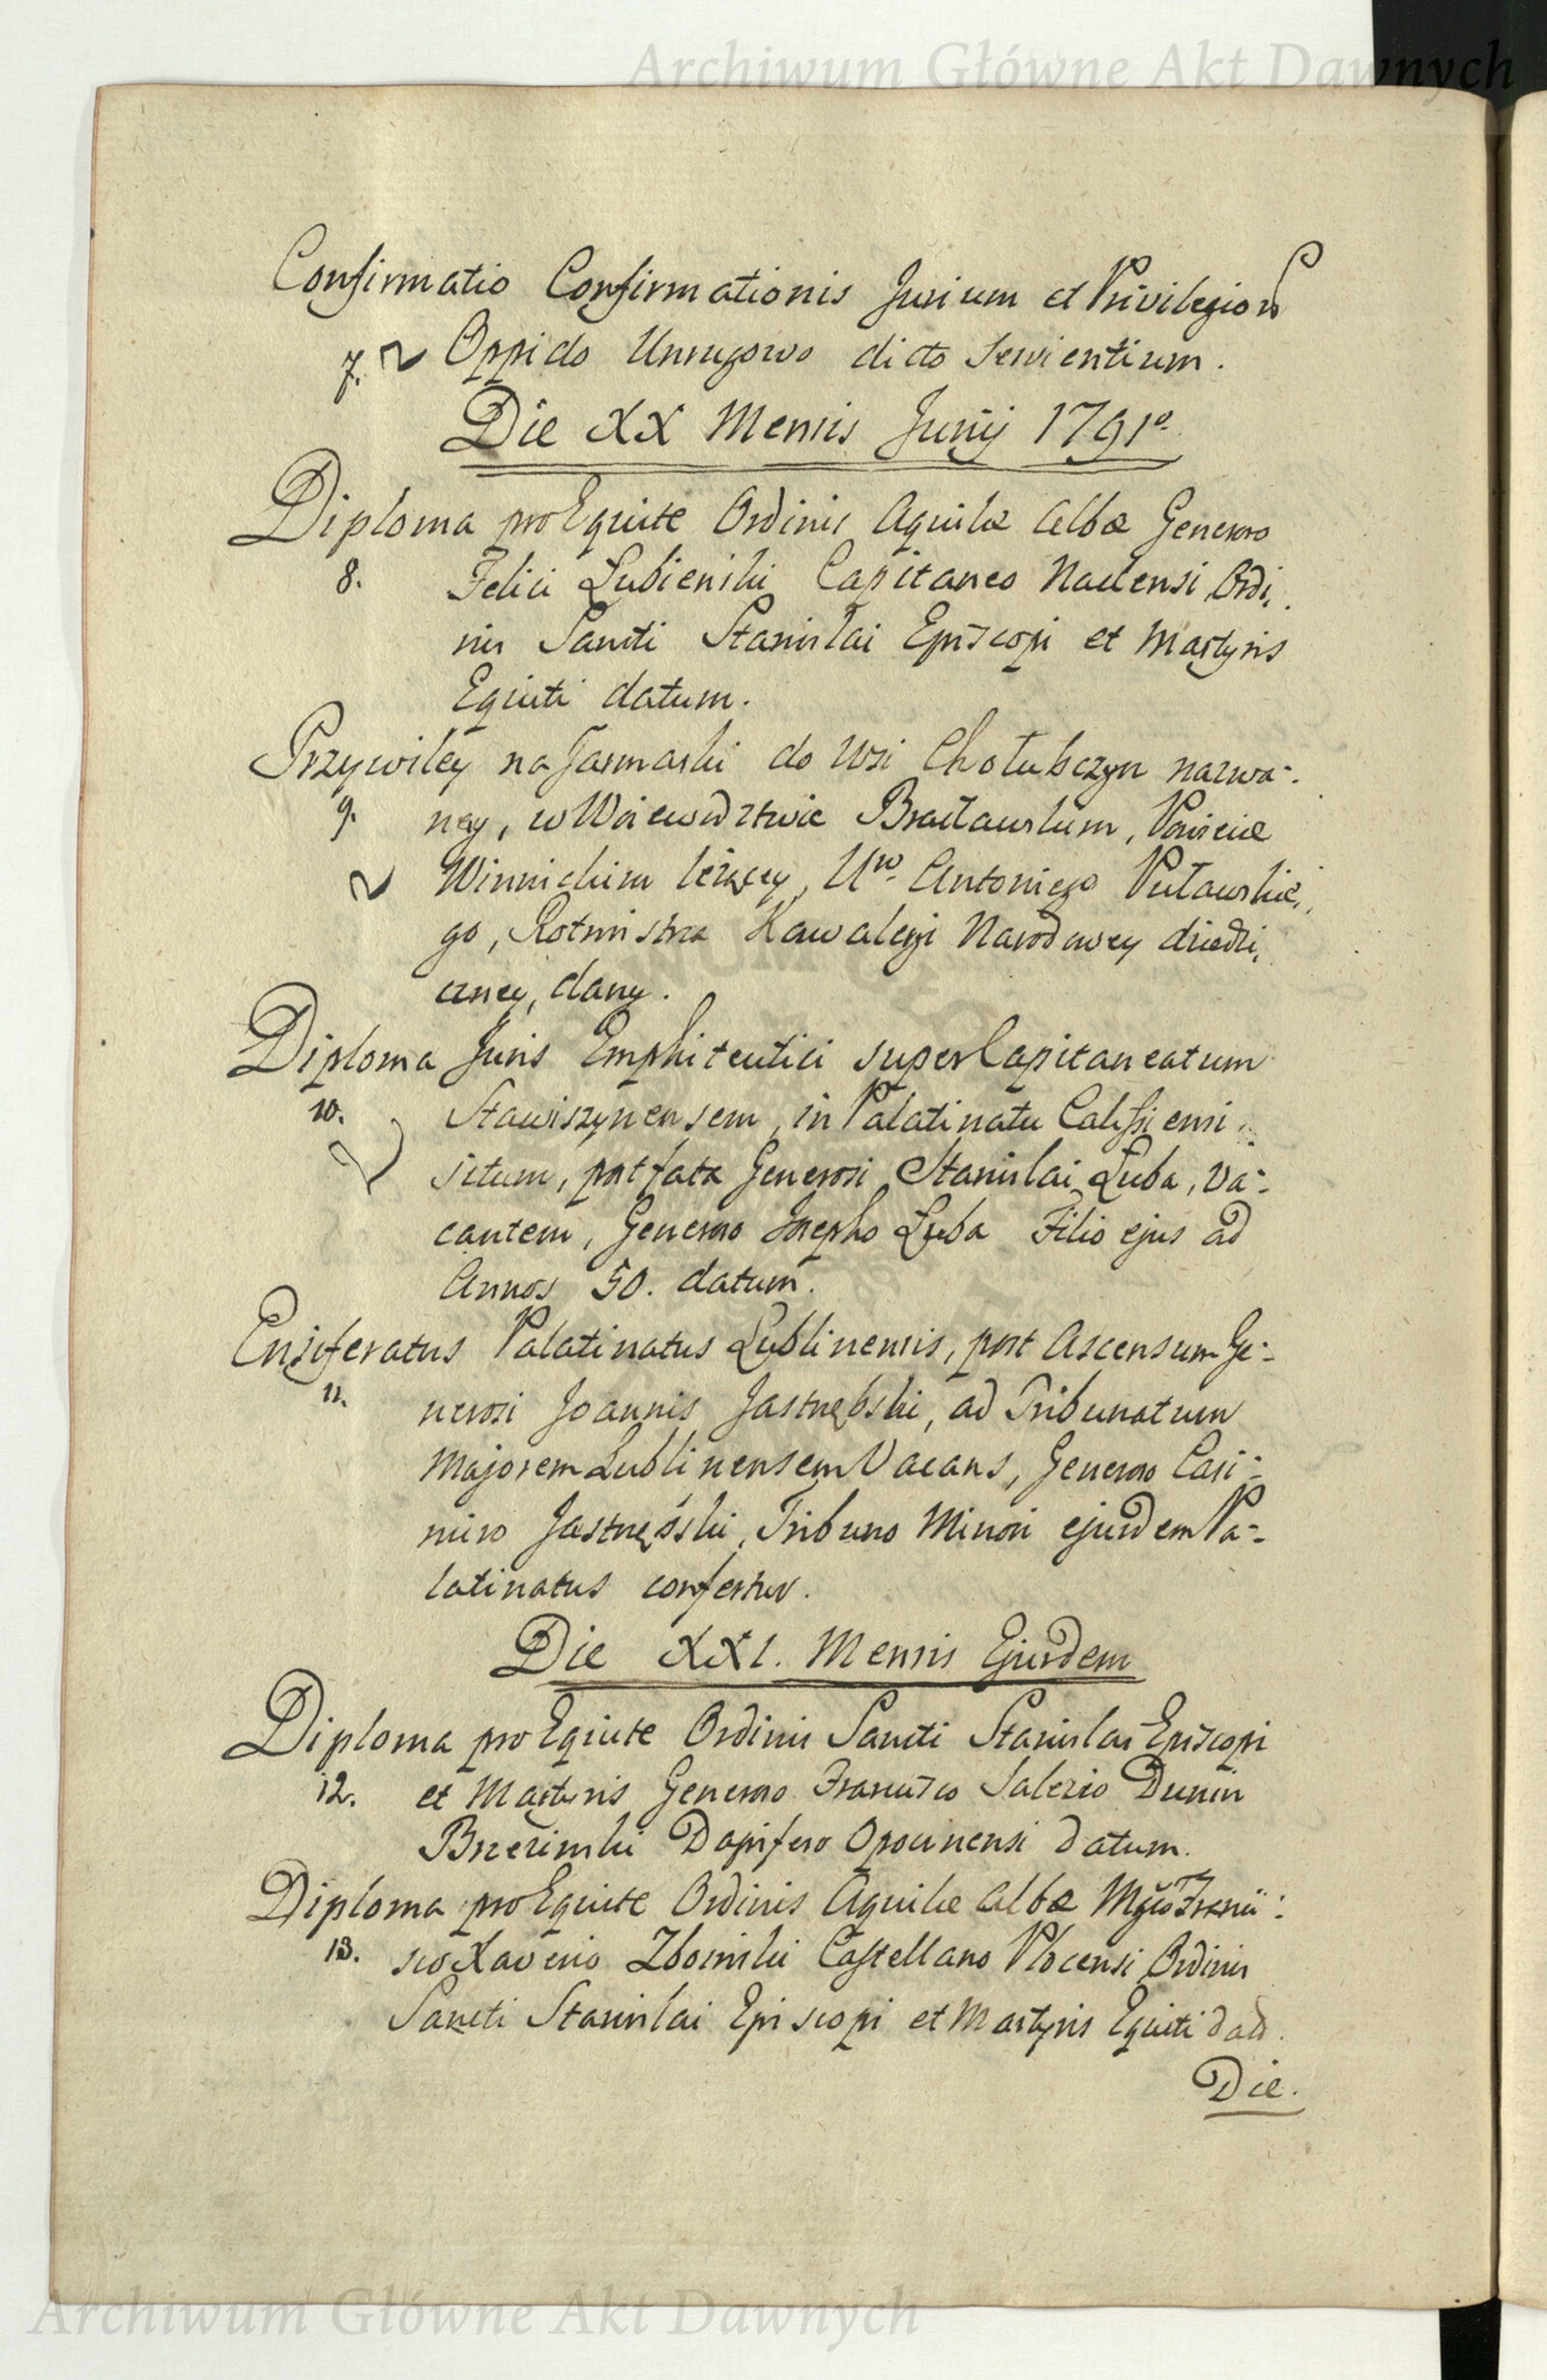 Archiwum Główne Akt Dawnych
Confirmatio Confirmationis Jurium et Privilegior
7. Oppido Unrugowo dicto servientium.
Die XX Mensis Junij 1791o
Diploma pro Equite Ordinis Aquilæ Albæ Generoso
8. Felici Łubienski Capitaneo Naclensi Ordi,
nis Sancti Stanislai Episcopi et Martyris
Equiti datum.
Przywiley na Jarmarki do Wsi Chołubczyn nazwa-
9. ney, w Woiewodztwie Bracławskim, Powiecie
Winnickim leżącey, Uro Antoniego Pułaskie,
go, Rotmistrza Kawaleryi Narodowey dziedzi,
czney, dany.
Diploma Juris Emphiteutici super Capitaneatum
10. Stawiszynensem, in Palatinatu Calissiensi
situm, post fata Generosi Stanislai Luba, va-
cantem, Generoso Josepho Luba Filio ejus ad
Annos 50. datum.
Ensiferatus Palatinatus Lublinensis, post Ascensum Ge-
11. nerosi Joannis Jastrzębski, ad Tribunatum
Majorem Lublinensem Vacans, Generoso Casi-
miro Jastrzębski, Tribuno Minori ejusdem Pa-
latinatus confertur.
Die XXI. Mensis Ejusdem
Diploma pro Equite Ordinis Sancti Stanislai Episcopi
12. et Martyris Generoso Francisco Salezio Dunin
Brzezinski Dapifero Opocinensi datum.
Diploma pro Equite Ordinis Aquilæ Albæ Mgco Franci-
13. sco Xaverio Zboinski Castellano Plocensi Ordinis
Sancti Stanislai Episcopi et Martyris Equiti dat.
Die.
Archiwum Główne Akt Dawnych